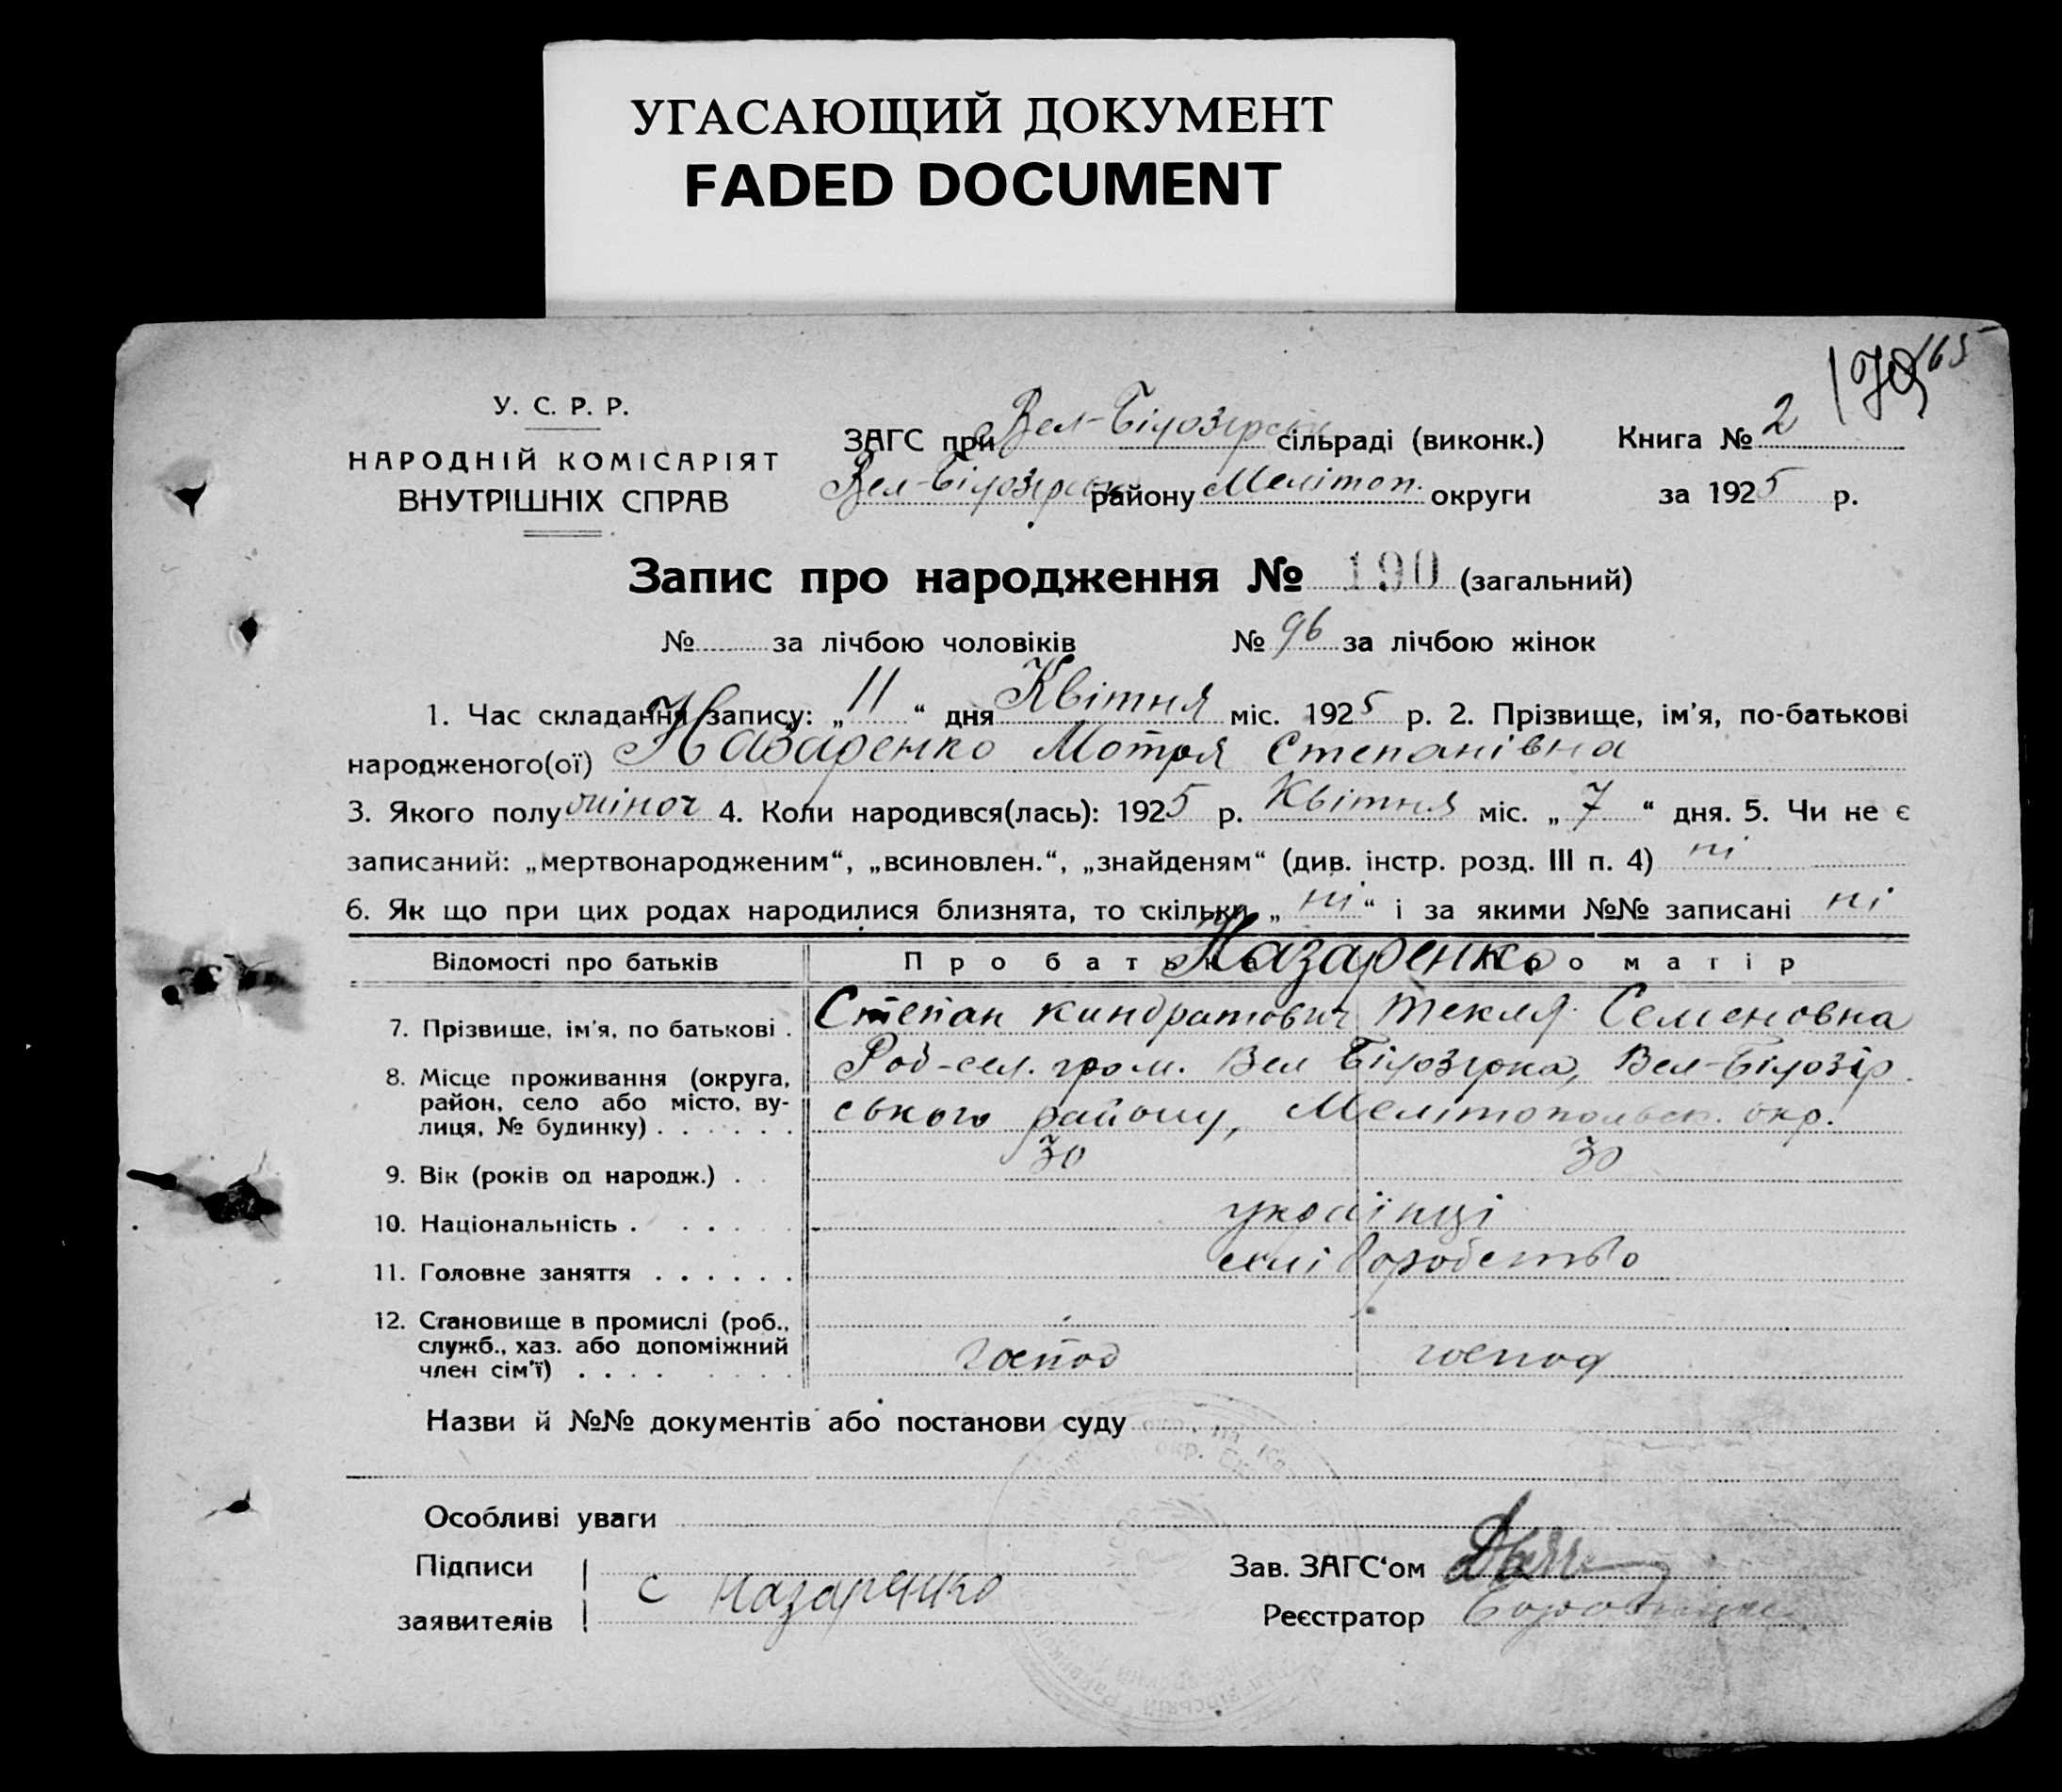 УГАСАЮЩИЙ ДОКУМЕНТ
FADED DOCUMENT
165
У. С. Р. Р.
НАРОДНІЙ КОМІСАРІЯТ
ВНУТРІШНІХ СПРАВ
ЗАГС при Вел-Білозірськ сільраді (виконк.) Книга № 2
Вел-Білозірськ району Мелітоп. округи за 1925 р.
Запис про народження № 190 (загальний)
№ за лічбою чоловіків № 96 за лічбою жінок
1. Час складання запису: „ 11 “ дня Квітня міс. 1925 р. 2. Прізвище, ім'я, по-батькові
народженого(ої) Назаренко Мотря Степанівна
3. Якого полу жіноч 4. Коли народився(лась): 1925 р. Квітня міс. „ 7 “ дня. 5. Чи не є
записаний: „мертвонародженим“, „всиновлен.“, „знайденям“ (див. інстр. розд. III п. 4) ні
6. Як що при цих родах народилися близнята, то скільки „ ні “ і за якими №№ записані ні
Відомості про батьків Про батька Про матір
Назаренко
7. Прізвище, ім'я, по батькові . Степан Киндратович Текля Семеновна
8. Місце проживання (округа,
район, село або місто, ву-
лиця, № будинку) . . . . . .
Вел Білозірка, Вел-Білозір
ського району, Мелітопольск. окр.
9. Вік (років од народж.) . 30 30
10. Національність . . . . українці
11. Головне заняття . . . . . .
12. Становище в промислі (роб.,
служб., хаз. або допоміжний
член сім'ї) . . . .
господ господ
Назви й №№ документів або постанови суду
Особливі уваги
Підписи
заявителів
с назаренко
Зав. ЗАГС‘ом
Реєстратор